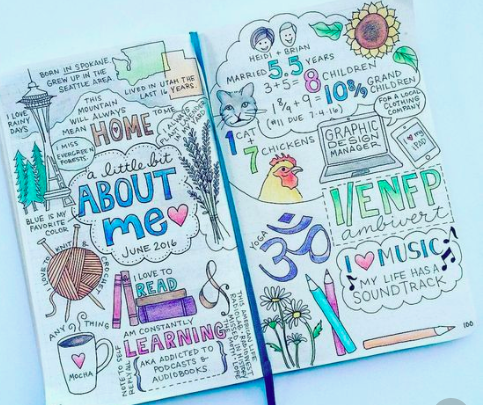 BORN IN SPOKANE,
GREW UP IN THE
SEATTLE AREA
LIVED IN UTAH THE
LAST 16 YEARS.
I LOVE
RAINY
DAYS
THIS
MOUNTAIN
WILL ALWAYS
MEAN HOME TO ME
I MISS
EVERGREEN
FORESTS
a little bit
ABOUT
me
JUNE 2016
BLUE IS MY
FAVORITE
COLOR
I LOVE TO KNIT & CROCHET
I LOVE TO
READ
ANYTHING
MOCHA
I AM CONSTANTLY
LEARNING
AKA ADDICTED TO
PODCASTS &
AUDIOBOOKS
NOTE TO SELF
REPLY ALL
THIS AMERICAN LIFE
RADIOLAB
HEIDI + BRIAN
MARRIED 5.5 YEARS
3+5= 8 CHILDREN
10 9/10 GRAND
CHILDREN
(#11 DUE 7-4-16)
1 CAT
+
7 CHICKENS
GRAPHIC
DESIGN
MANAGER
FOR A LOCAL
CLOTHING
COMPANY
I my
iPAD
I/ENFP
ambivert
YOGA
ॐ
I MUSIC
MY LIFE HAS A
SOUNDTRACK
100